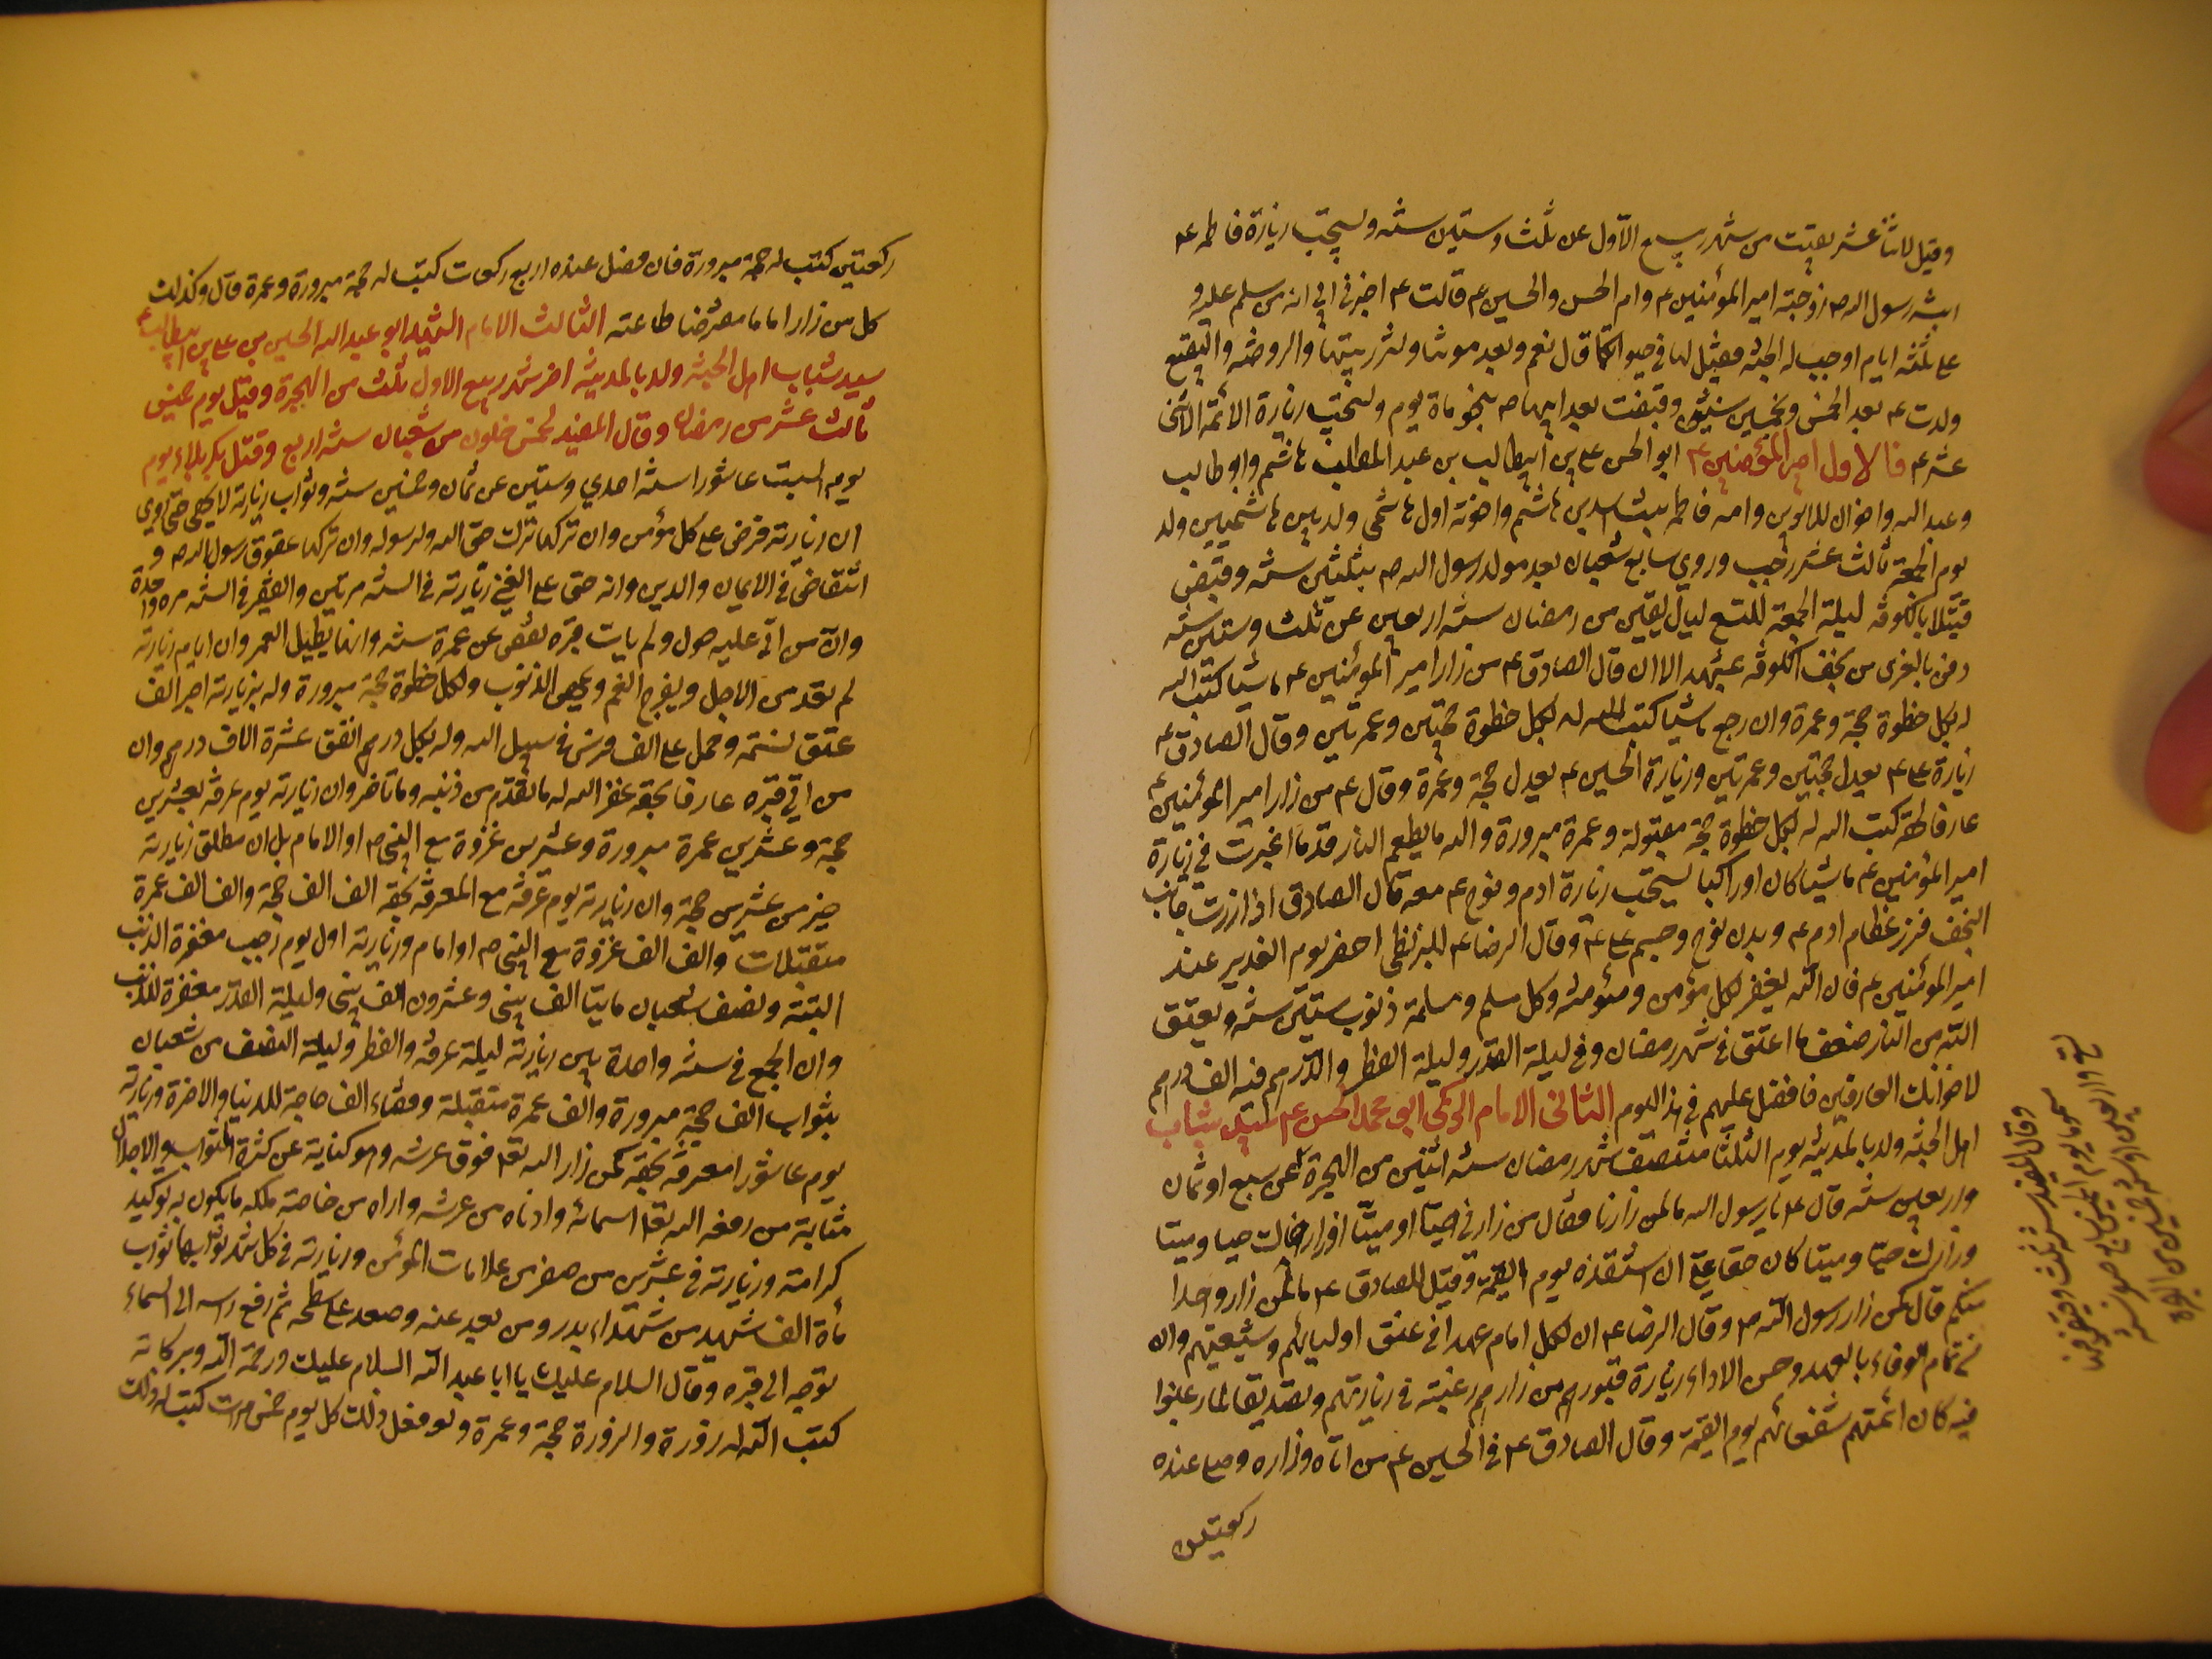 وقيل لاثنا عشر بقيت من شهر ربيع الاول عن ثلث وستين سنه ويستحب زيارة فاطمه ع
ابنه رسول الله ص زوجة امير المؤمنين ع وام الحسن والحسين ع قالت ع اخبرني ابي انه من سلم عليه و
علي ثلثه ايام اوجب له الجنه فقيل لها في حيوتكما قال نعم وبعد موتنا ولتزر بيتها والروضه والبقيع
ولدت ع بعد المبعث بخمس سنين وقبضت بعد ابيها ص بنحو ماة يوم ويستحب زيارة الائمة الاثني
عشر ع فالاول امير المؤمنين ع ابو الحسن علي بن ابيطالب بن عبد المطلب بن هاشم وابو طالب
وعبد الله واخوان للابوين وامه فاطمه بنت اسد بن هاشم واخوته اول هاشمي ولد بين هاشميين ولد
يوم الجمعة ثالث عشر رجب وروي سابع شعبان بعد مولد رسول الله ص بثلثين سنه وقبض
قتيلا بالكوفه ليلة الجمعة لتسع ليال بقين من رمضان سنه اربعين عن ثلث وستين سنه
دفن بالغرى من نجف الكوفه بمشهده الاان قال الصادق ع من زار امير المؤمنين ع ماشيا كتب الله
له بكل خطوة حجة وعمرة وان رجع ماشيا كتب الله له بكل خطوة حجتين وعمرتين وقال الصادق ع
زيارة علي ع يعدل حجتين وعمرتين وزيارة الحسين ع يعدل حجة وعمرة وقال ع من زار امير المؤمنين ع
عارفا بحقه كتب الله له بكل خطوة حجة مقبولة وعمرة مبرورة والله ما يطعم النار قدما اغبرت في زيارة
امير المؤمنين ع ماشيا كان او راكبا يستحب زيارة ادم ونوح ع معه قال الصادق اذا زرت جانب
النجف فزر عظام ادم ع وبدن نوح وجسم علي ع وقال الرضا ع للبزنطي احضر يوم الغدير عند
امير المؤمنين ع فان الله يغفر لكل مؤمن ومؤمنه وكل مسلم ومسلمة ذنوب ستين سنه ويعتق
الله من النار ضعف ما اعتق في شهر رمضان وفي ليلة القدر وليلة الفطر والدرهم فيه الف درهم
لاخوانك العارفين فافضل عليهم في هذا اليوم الثاني الامام الزكي ابي محمد الحسن ع سيد شباب
اهل الجنه ولد بالمدينه يوم الثلثا منتصف شهر رمضان سنه اثنين من الهجرة عن سبع او ثمان
واربعين سنه قال ع يارسول الله مالمن زارنا فقال من زارني حيا او ميتا او زار اباك حيا وميتا
وزارك حيا وميتا كان حقا علي ان استنقذه يوم القيمة وقيل للصادق ع مالمن زار واحدا
منكم قال كمن زار رسول الله ص وقال الرضا ع ان لكل امام عهدا في عنق اوليائهم وشيعتهم وان
من تمام الوفاء بالعهد وحسن الاداء زيارة قبورهم من زارهم رغبته في زيارتهم وتصديقا لما رغبوا
فيه كان ائمتهم شفعائهم يوم القيمة وقال الصادق ع في الحسين ع من اتاه وزاره وصلى عنده
ركعتين
وقال المفيد سنه ثلث وقبض
ركعتين كتب له حجة مبرورة فان فضل عنده اربع ركعات كتب له حجة مبرورة وعمرة قال وكذلك
كل من زار اماما مفترضا طاعته الثالث الامام الشهيد ابو عبد الله الحسين بن علي بن ابيطالب ع
سيد شباب اهل الجنه ولد بالمدينه اخر شهر ربيع الاول ثلث من الهجرة وقيل يوم خميس
ثالث عشر من رمضان وقال المفيد لخمس خلون من شعبان سنه اربع وقتل بكربلاء يوم
يوم السبت عاشورا سنه احدي وستين عن ثمان وخمسين سنه وثواب زيارته لا يحصي حتى روي
ان زيارته فرض علي كل مؤمن وان تركها ترك حق الله ولرسوله وان تركها عقوق رسول الله ص و
انتقاص في الايمان والدين وانه حق علي الغني زيارته في السنه مرتين والفقير في السنه مره واحدة
وان من اتي عليه حول ولم يات قبره نقص من عمره سنه وانها يطيل العمر وان ايام زيارته
لم تعد من الاجل ويفرج الغم ويمحص الذنوب ولكل خطوة حجة مبرورة وله بزيارته اجر الف
عتق نسمه وحمل علي الف فرس في سبيل الله وله بكل درهم انفق عشرة الاف درهم وان
من اتي قبره عارفا بحقه غفر الله له ما تقدم من ذنبه وما تاخر وان زيارته يوم عرفه بعشرين
حجة وعشرين عمرة مبرورة وعشرين غزوة مع النبي ص او الامام بل ان مطلق زيارته
خير من عشرين حجة وان زيارته يوم عرفه مع المعرفه بحقه الف الف حجة والف الف عمرة
متقبلات والف الف غزوة مع النبي ص او امام وزيارته اول يوم رجب مغفرة الذنب
البتة ونصف شعبان ماتيا الف نبي وعشرون الف نبي وليلة القدر مغفرة للذنب
وان الجمع في سنه واحدة بين زيارته ليلة عرفه والفطر وليلة النصف من شعبان
بثواب الف حجة مبرورة والف عمرة متقبلة وقضاء الف حاجة للدنيا والاخرة وزيارته
يوم عاشورا معرفه بحقه كمن زار الله تع فوق عرشه وهو كناية عن كثرة الثواب والاجلال
مثابة من رفعه الله تع اسمائه وادناه من عرشه واراه من خاصة ملكه ما يكون به توكيد
كرامته وزيارته في عشرين من صفر من علامات المؤمن وزيارته في كل شهر ثوابها ثواب
مأة الف شهيد من شهداء بدر ومن بعد عنه وصعد علي سطحه ثم رفع راسه الى السماء
توجه الى قبره وقال السلام عليك يا ابا عبد الله السلام عليك ورحمة الله وبركاته
كتب الله له زورة والزورة حجة وعمرة ولو فعل ذلك كل يوم خمس مرات كتب له ذلك